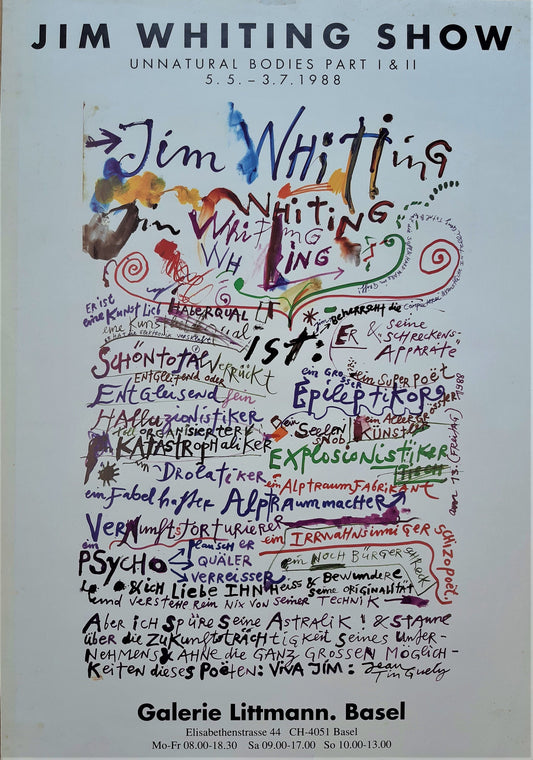 JIM WHITING SHOW
UNNATURAL BODIES PART I & II
5. 5. – 3.7. 1988
Jim WHiTTiNG
WHiTiNG
Jim WHiTiNG
WH LiNG
ER iST
eiNe KUNSt
HALERQUAL !!
BEHERRSCHT die
eine KUNST
iST:
ER & seine
"SCHRECKENS-
APPARATE
SCHÖNTOTALVERRÜCKT
ENTGLEITEND ODER
ein GROSSER
ein SUPER POËT
ENTGLEISEND fein
EPiLEPTiKOR
HALLUZiONiSTiKER
ein ALLER
KÜNSTLER
ein
SEELEN
SNOB
TOTALORGANiSiERTER
KATASTROPHALiKER
EXPLOSiONiSTiKER
DROLATiKER
ein ALPTRAUMFABRiKANT
am 13. (FREiTAG) 1988
ein FABELHAFTER ALPTRAUMMACHER
VERNUNFTSTORTURiERER
ein iRRWAHNSiNNiGER SCHiZOPOËT
ein
PSYCHO
PLAUSCHER
QUÄLER
VERREiSSER
ein NOCH BÜRGERSCHRECK
& iCH LiEBE iHN HEiSS & BEWUNDERE
SEiNE ORiGiNALiTÄT
und VERSTEHE REiN NiX VON SEiNER TECHNiK
ABER iCH SPÜRE SEiNE ASTRALiK ! & STAUNE
ÜBER DiE ZUKUNFTSTRÄCHTiGKEiT SEiNES UNTER-
NEHMENS & AHNE DiE GANZ GROSSEN MÖGLiCH-
KEiTEN DiESES POËTEN: ViVA JiM: Jean
Tinguely
Galerie Littmann. Basel
Elisabethenstrasse 44 CH-4051 Basel
Mo-Fr 08.00-18.30 Sa 09.00-17.00 So 10.00-13.00